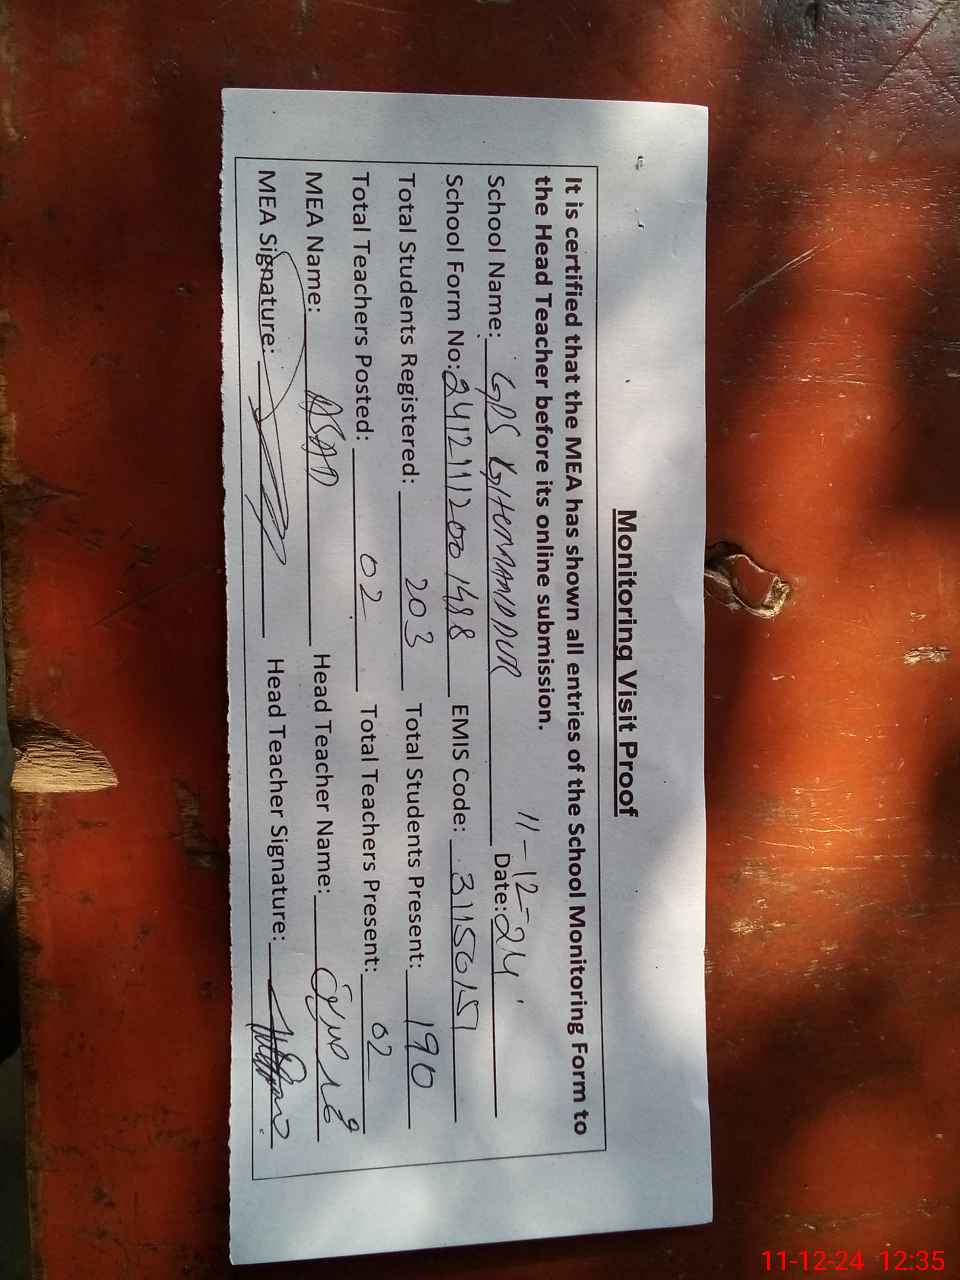 Monitoring Visit Proof
It is certified that the MEA has shown all entries of the School Monitoring Form to
the Head Teacher before its online submission.
School Name: GPS Date: 11-12-24
School Form No: 24121112001488 EMIS Code: 31150151
Total Students Registered: 203 Total Students Present: 190
Total Teachers Posted: 02 Total Teachers Present: 02
MEA Name: ASAD Head Teacher Name:
MEA Signature: Head Teacher Signature:
11-12-24 12:35